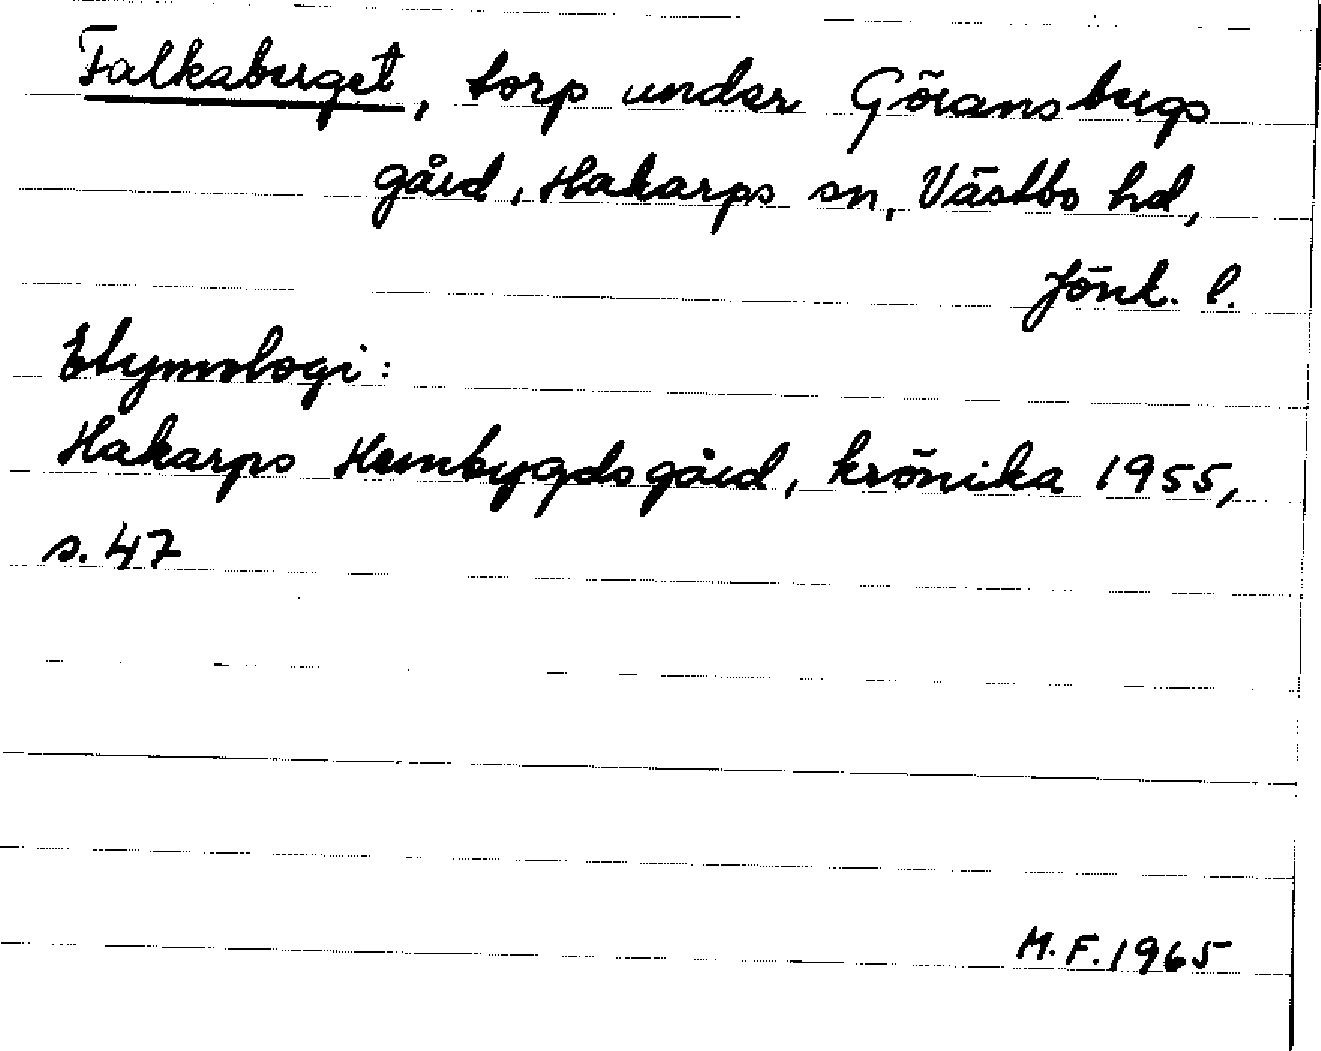 Falkaberget, torp under Göransbergs
gård, Hakarps sn, Västbo hd,
Jönk. l.
Etymologi:
Hakarps Hembygdsgård, krönika 1955,
s. 47
M.F. 1965